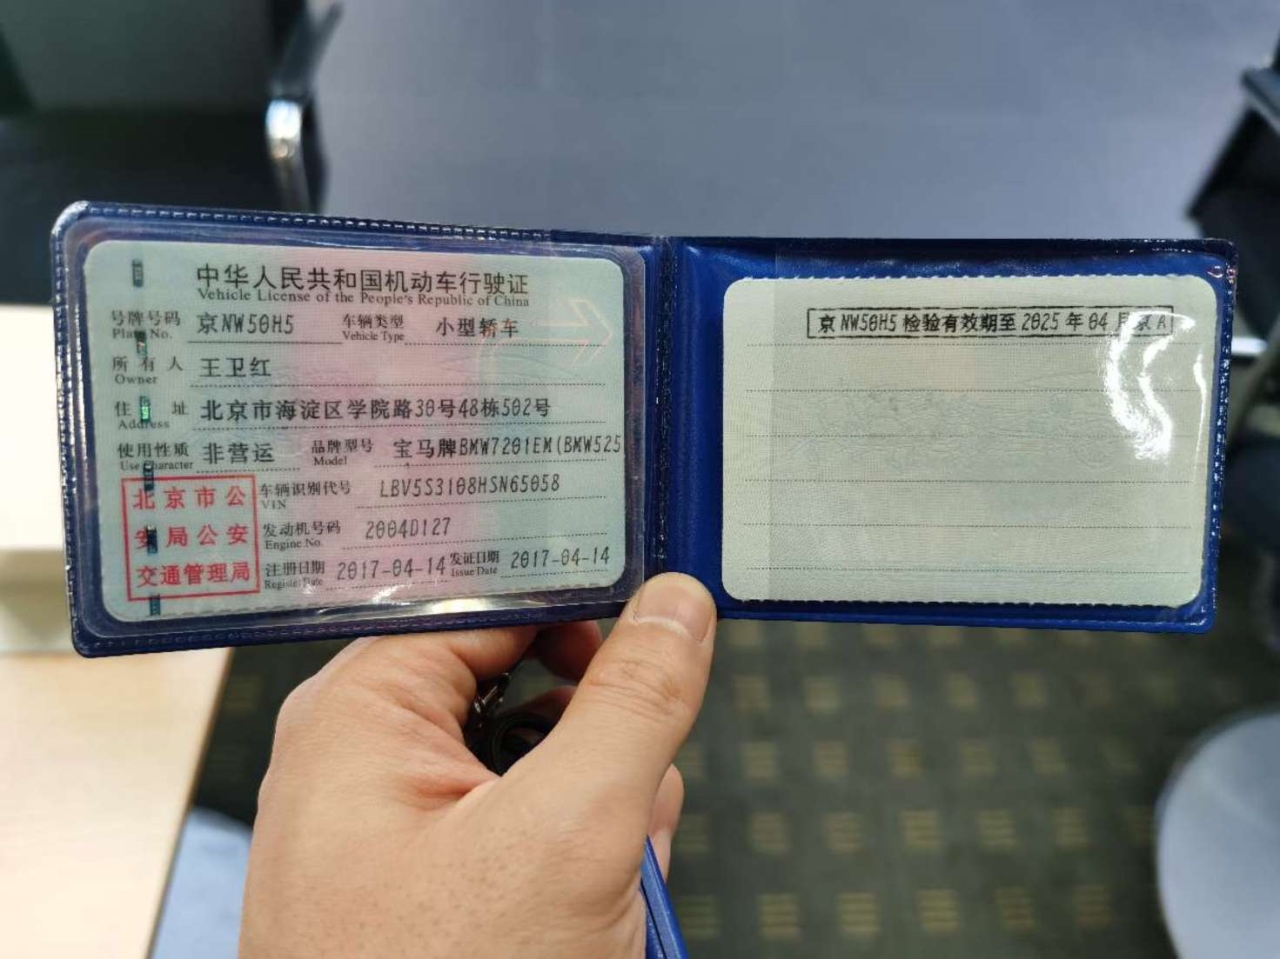 中华人民共和国机动车行驶证
Vehicle License of the People's Republic of China
号牌号码 京NW50H5 车辆类型 小型轿车
Plate No. Vehicle Type
所有人 王卫红
Owner
住址 北京市海淀区学院路30号48栋502号
Address
使用性质 非营运 品牌型号 宝马牌BMW7201EM(BMW525
Use Character Model
北京市公
安局公安
交通管理局
车辆识别代号 LBV5S3108HSN65058
VIN
发动机号码 2004D127
Engine No.
注册日期 2017-04-14 发证日期 2017-04-14
Register Date Issue Date
京NW50H5 检验有效期至 2025 年 04 月 京A